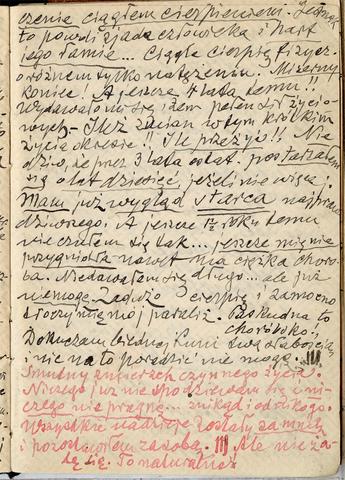 czenia ciągłem cierpieniem. Jednak
to powoli zjada człowieka i hart
jego łamie... Ciągle cierpię fizycz.
o różnem tylko natężeniu. Mizerny
koniec! A jeszcze 4 lata temu!!
Wydawało mi się, żem pełen sił życio-
wych – Ileż zmian w tym krótkim
życia okresie!! Ile przeżyć!! Nie
dziw, że przez 3 lata ostat. postarzałem
się o lat dziesięć, jeżeli nie więcej.
Mam już wygląd starca najprawdziwszego. A jeszcze 1½ roku temu
nie czułem się tak... jeszcze mię nie
przygniotła nawet ma ciężka choro-
ba. Nie dawałem się długo... ale już
nie mogę. Za dużo cierpię i za mocno
stoczył mię mój paraliż. Paskudna to
choróbsko!
Dokuczam biednej Luni swą słabością
i nic na to poradzić nie mogę.
Smutny zmierzch czynnego życia.
Niczego już nie spodziewam się i ni-
czego nie pragnę... znikąd i od nikogo.
Wszystkie nadzieje zostały za mną
i pozostawiłem za sobą. Ale nie żalę się. To naturalne